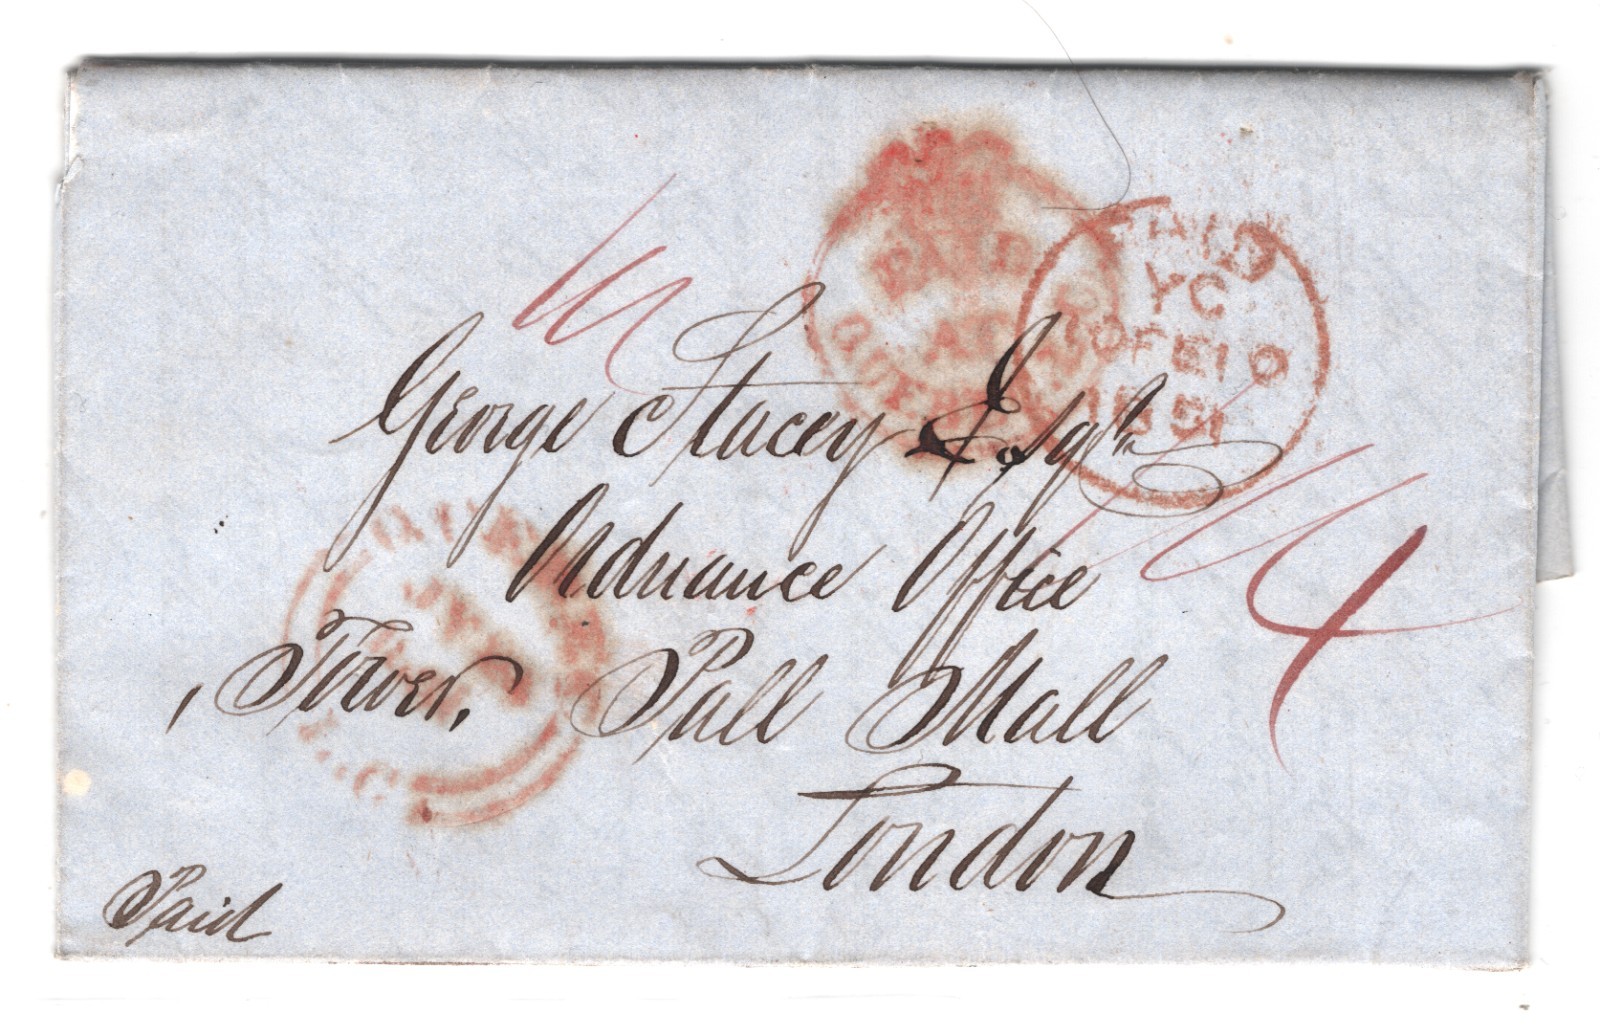 PAID
AT
PAID
YC
10 FE 10
1851
George Stacey Esqr
Ordnance Office
Tower, Pall Mall
London
4
Paid